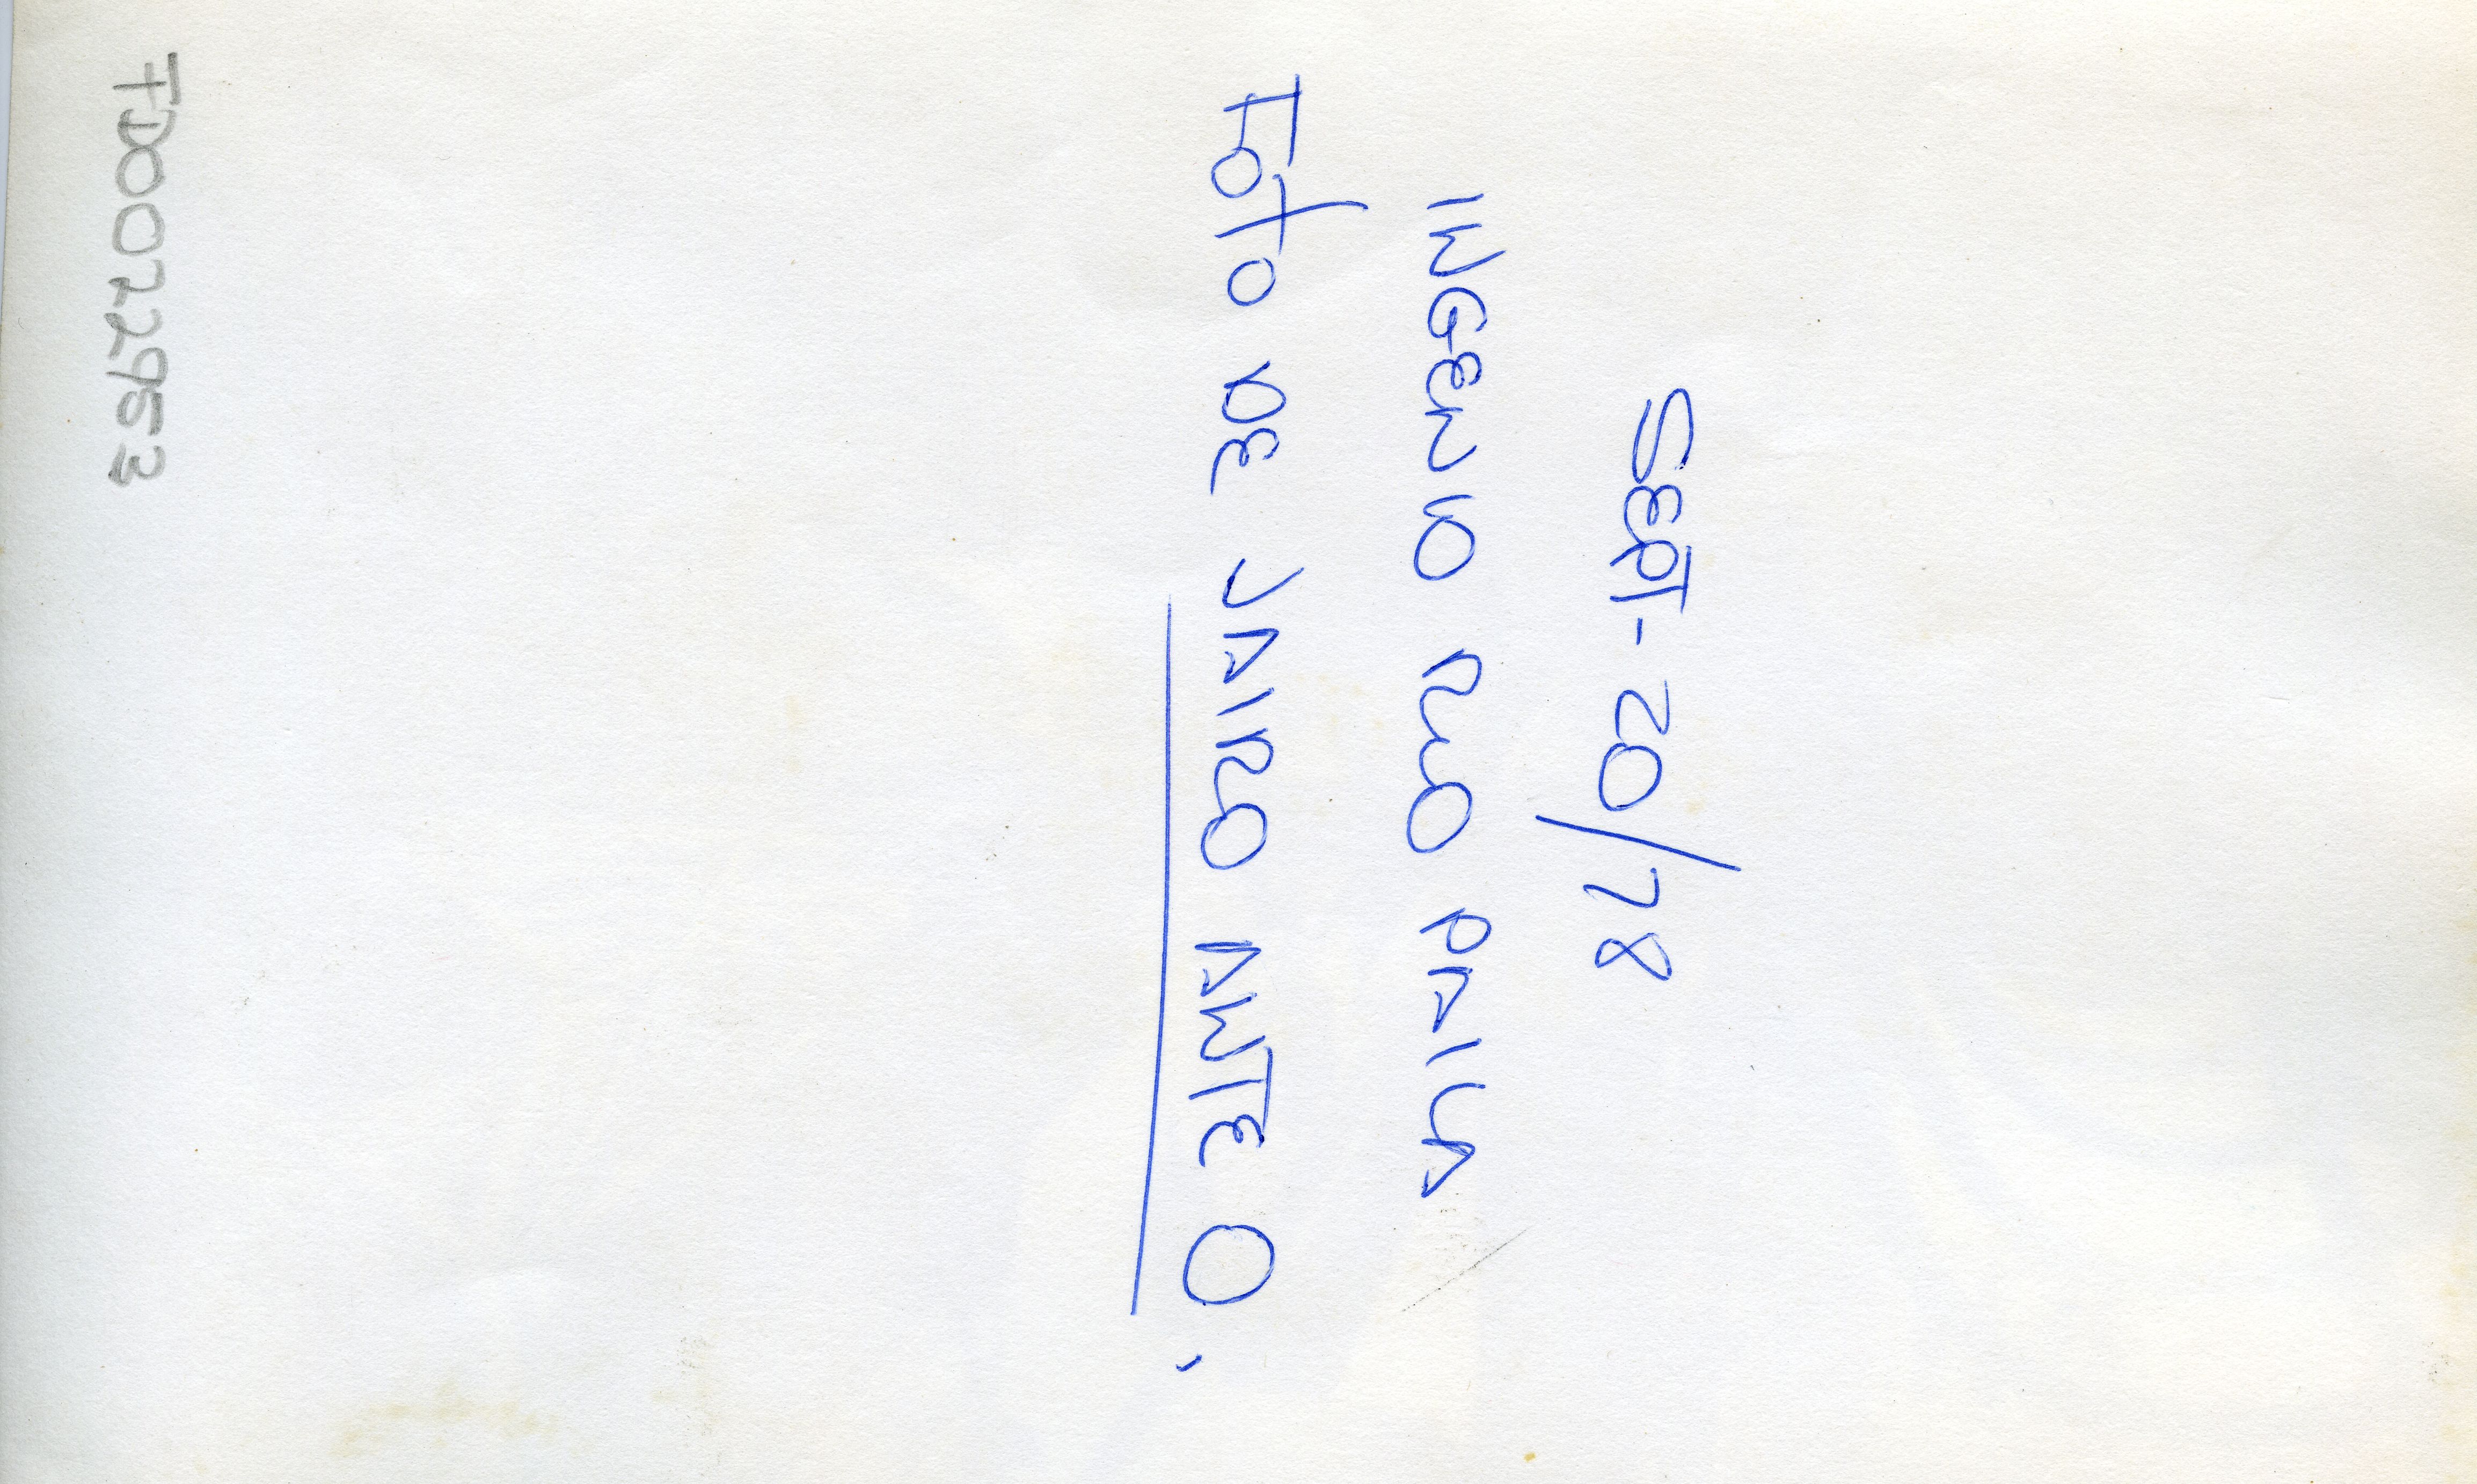 SEPT-20/78
INGENIO RIO PAILA
FOTO DE JAIRO ANTE O.
FD0022953